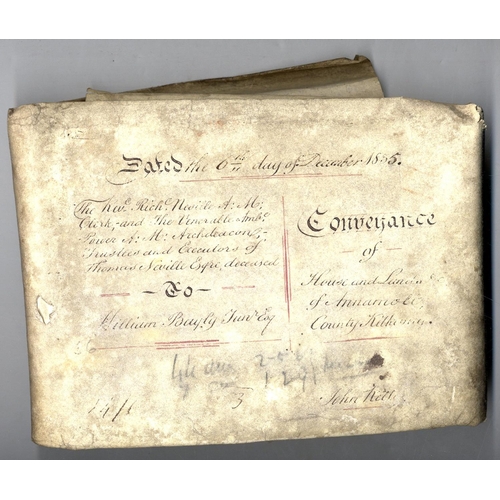 Dated the 6th day of December 1855.
The Revd. Richd. Neville A: M:
Clerk, and The Venerable Ambe.
Power A: M: Archdeacon,
Trustees and Executors of
Thomas Neville Esqre, deceased
To
William Bayly Junr Esq
Conveyance
of
House and Lands
of
County Kilkenny
3
John